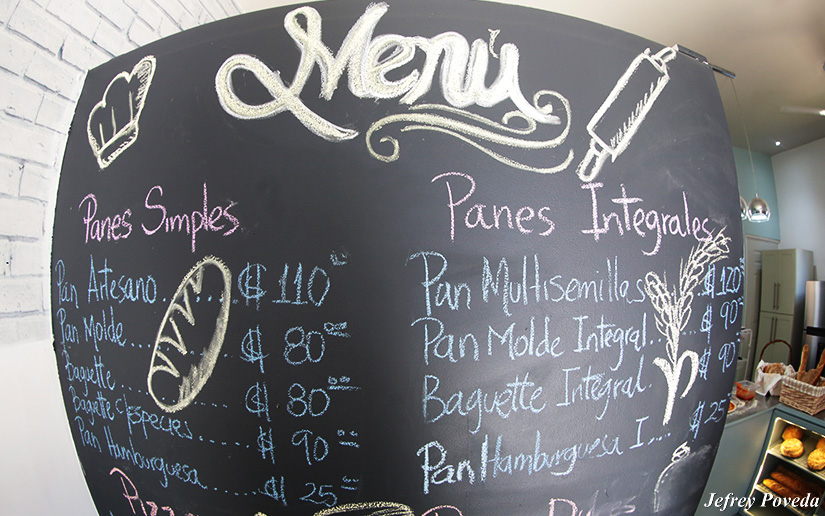 Menú
Panes Simples
Pan Artesano......... C$ 110.00
Pan Molde......... C$ 80.00
Baguette......... C$ 80.00
Baguette c/especies...... C$ 90.00
Pan Hamburguesa...... C$ 25.00
Panes Integrales
Pan Multisemillas C$ 120.00
Pan Molde Integral. C$ 90.00
Baguette Integral. C$ 90.00
Pan Hamburguesa I.... C$ 25
Jefrey Poveda